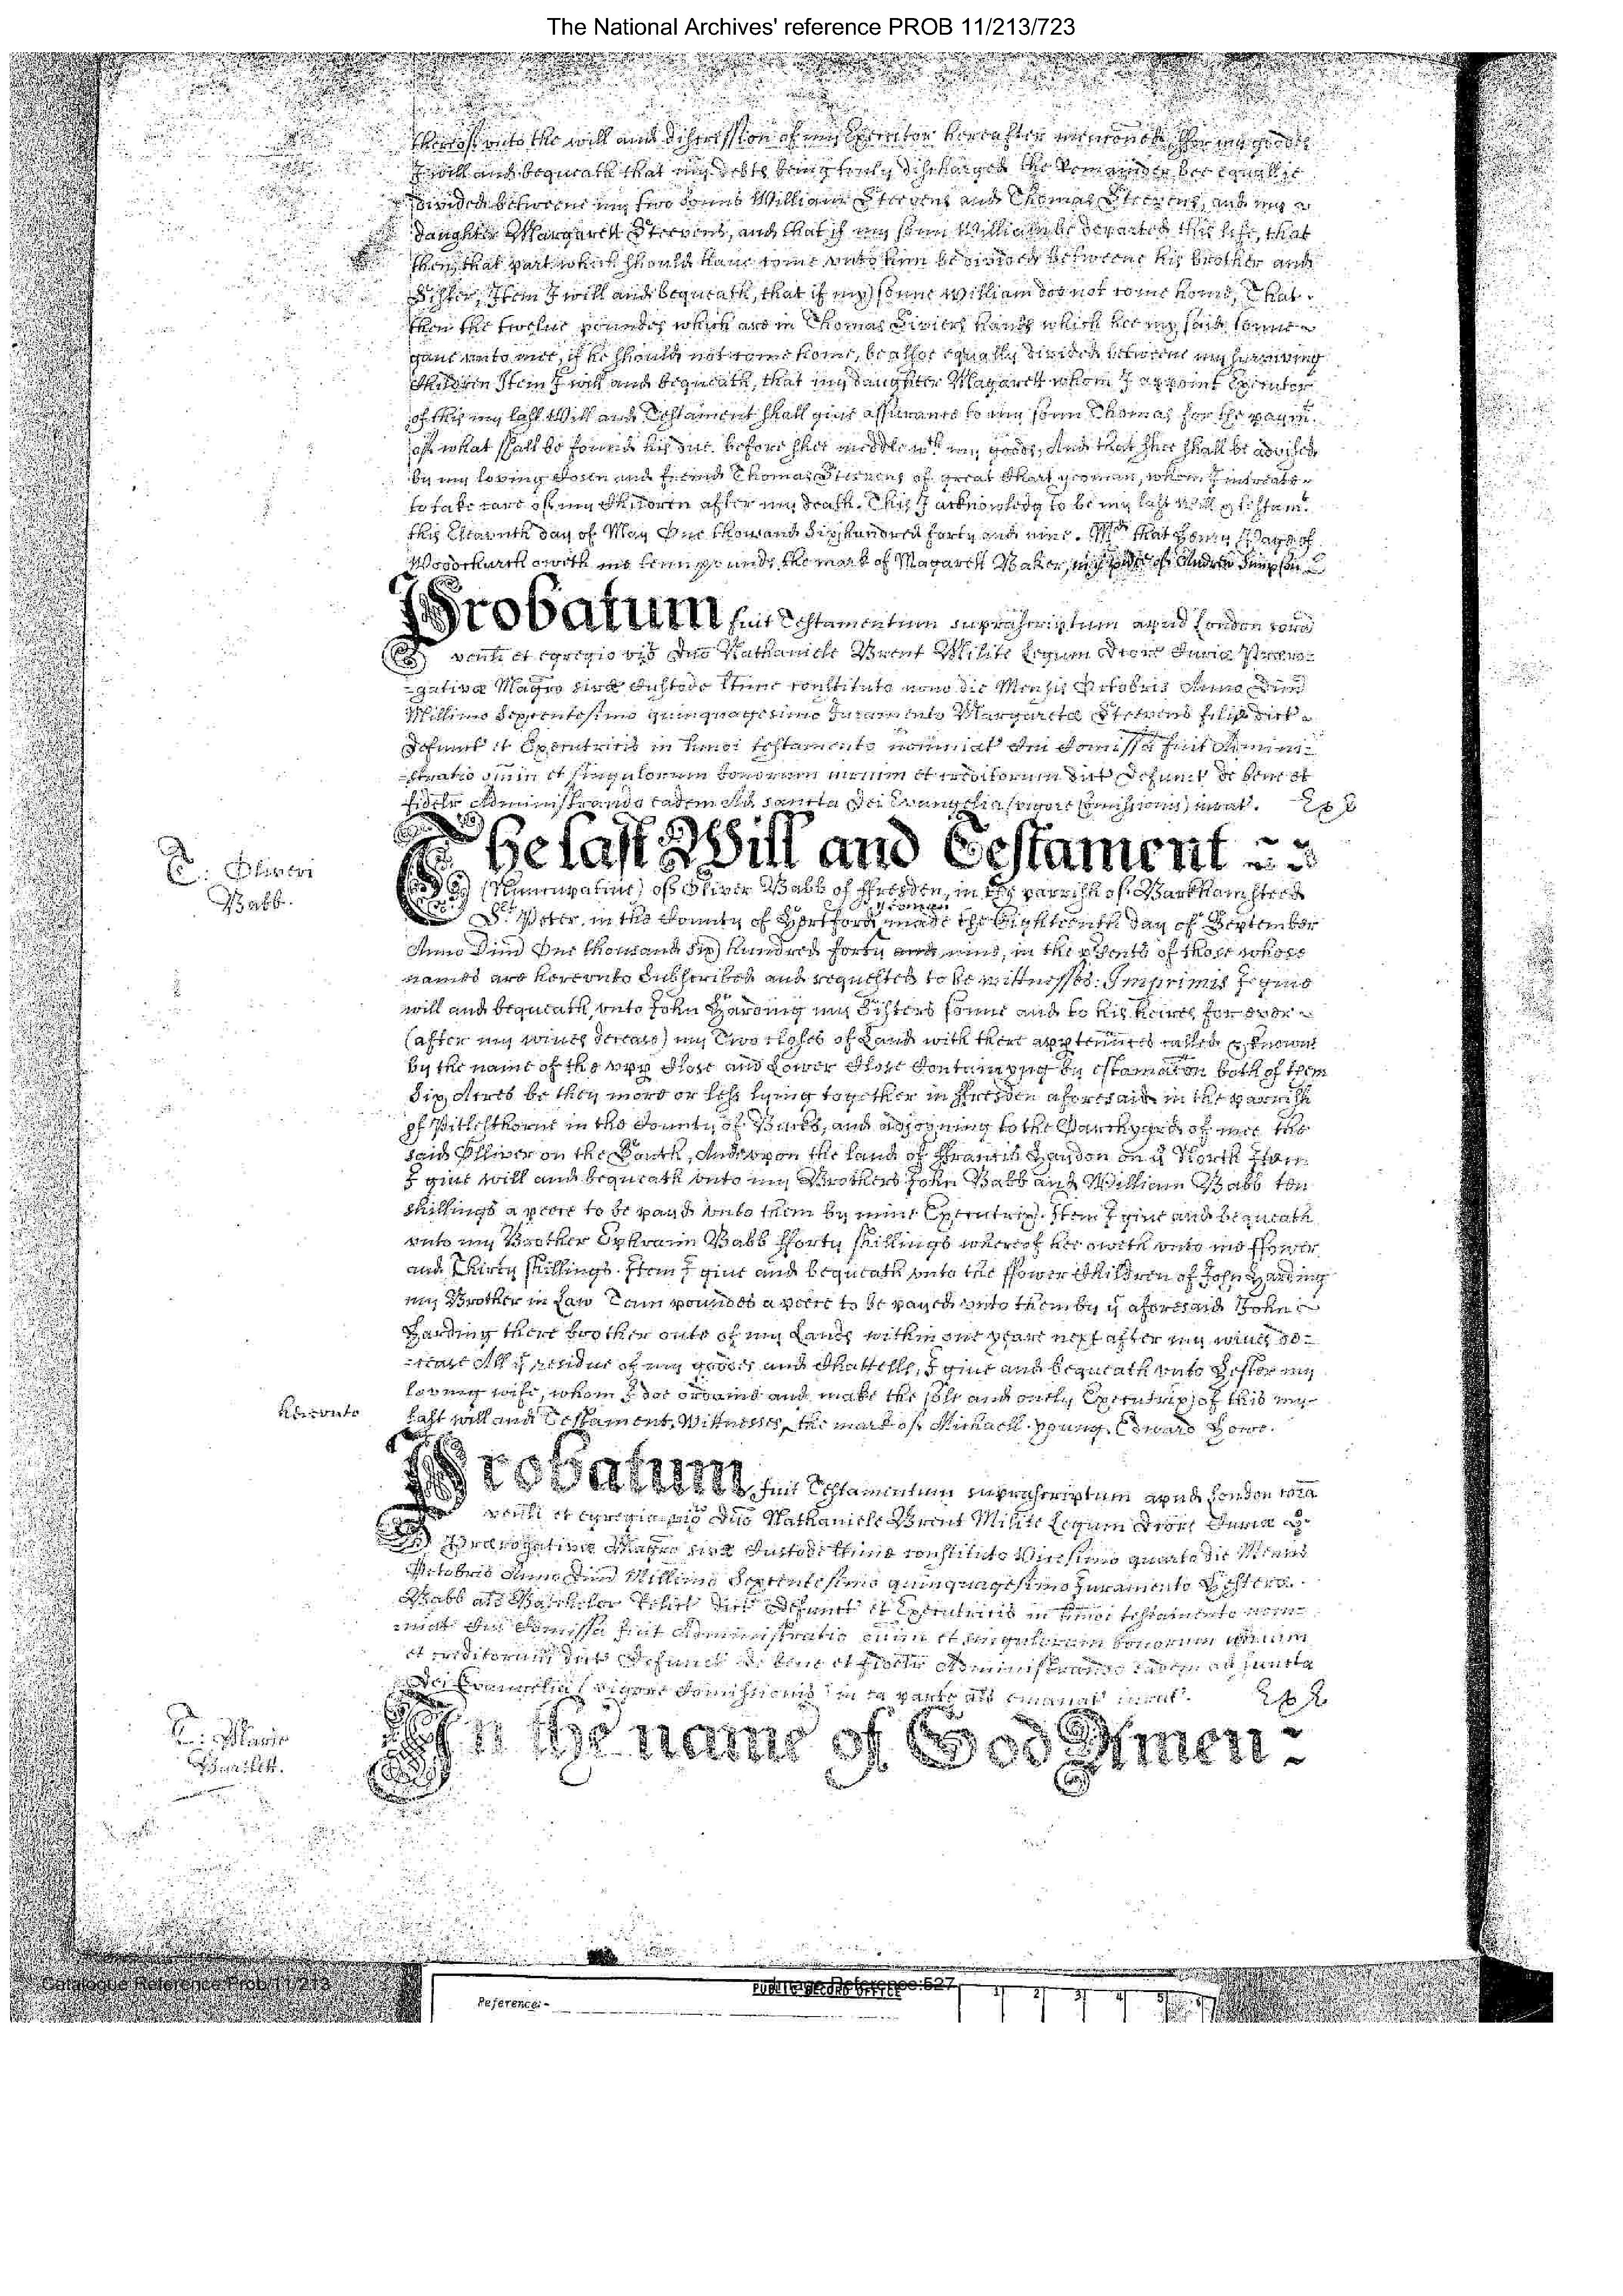 The National Archives' reference PROB 11/213/723
thereof unto the will and discression of my Executor hereafter menconed. ffor my goods
I will and bequeath that my debts being truly discharged the Remainder bee equallie
divided betweene my two sonns William Steevens and Thomas Steevens, and my
daughter Margarett Steevens, and that if my sonn William be departed this life, that
then that part which should have come unto him be divided betweene his brother and
Sister, Item I will and bequeath, that if my sonne William doe not come home, That
then the twelve poundes which are in Thomas hands which hee my said sonne
gave unto mee, if he should not come home, be allsoe equally divided betweene my surviving
Children Item I will and bequeath, that my daughter Magarett whom I appoint Executor
of this my last Will and Testament shall give assurance to my sonn Thomas for the paymt.
of what shall be found his due before shee meddle wth. my goods, And that shee shall be advised
by my loving Cosen and freind Thomas Steevens of great Chart yeoman, whom I intreate
to take care of my Children after my death. This I acknowledg to be my last Will & testamt.
this Eleaventh day of May One thowsand six hundred forty and nine. Md. that Henry Page of
Woodchurch oweth me tenn pounds, the mark of Magarett Baker, Andrew Simpson
Probatum fuit Testamentum suprascriptum apud London corā
venli et egregio viō Dnō Nathaniele Brent Milite Legum Dtore Curiæ Prero=
=gativæ Magro sive Custode ltime constituto nono die Mensis Octobris Anno Dnd
Millimo Sexcentesimo quinquagesimo Juramento Margaretæ Steevens filiæ dict
Defunct et Executricis in hmoi testamento nominat Cui Comissa fuit Admini=
=stratio omin et singulorum bonorum iurium et creditorum dict Defunct De bene et
fidelr Administrando eadem Ad sancta Dei Evangelia (vigore Comissionis) iurat. Exp
T: Oliveri
Babb.
The last Will and Testament
(Nuncupative) of Oliver Babb of ffresden, in the parrish of Barkhamsteed
St. Peter, in the County of Hertford yeoman made the Eighteenth day of September
Anno Dnd One thousand six hundred forty and nine, in the psents of those whose
names are hereunto Subscribed and requested to be wittnesses: Imprimis I give
will and bequeath, unto John Harding my Sisters sonne and to his heires for ever
(after my wives decease) my Two closes of Land with there apptennces called & knowne
by the name of the upp Close and Lower Close Contayning by estamacon both of them
Six Acres be they more or less lying together in ffresden aforesaid in the parrish
of Pitlesthorne in the County of Bucks, and adjoyning to the of mee the
said Olliver on the South, And upon the land of ffrancis Haydon on ye North Item
I give will and bequeath unto my Brothers John Babb and William Babb ten
shillings a peece to be payd unto them by mine Executrix. Item I give and bequeath
unto my Brother Ephraim Babb fforty shillings whereof hee oweth unto me ffower
and Thirty shillings. Item I give and bequeath unto the ffower Children of John Harding
my Brother in Law Tenn poundes a peece to be payed unto them by ye aforesaid John
Harding there brother oute of my Lands within one yeare next after my wives de=
=cease All ye residue of my goodes and Chattells, I give and bequeath unto Hester my
loveing wife, whom I doe ordaine and make the sole and onely Executrix of this my
hereunto
last will and Testament, Wittnesses, the mark of Michaell young, Edward Howe.
Probatum fuit Testamentum suprascriptum apud London corā
venli et egregio viō Dnō Nathaniele Brent Milite Legum Dtore Curiæ
Prærogativæ Magro sive Custode ltime constituto Vicesimo quarto die Mensis
Octobris Anno Dnd Millimo Sexcentesimo quinquagesimo Juramento Hesteræ
Babb als Batchelor Relict dict Defunct et Executricis in hmoi testamento nom=
=inat Cui Comissa fuit Administratio omin et singulorum bonorum iurium
et creditorum dict Defunct De bene et fidelr Administrando eadem ad sancta
Dei Evangelia (vigore Comissionis in ea parte als emanat iurat. Exp
T: Marie
Bartlett.
In the name of God Amen:
Catalogue Reference:Prob/11/213
Image Reference:527
PUBLIC RECORD OFFICE
Reference:-
1 2 3 4 5